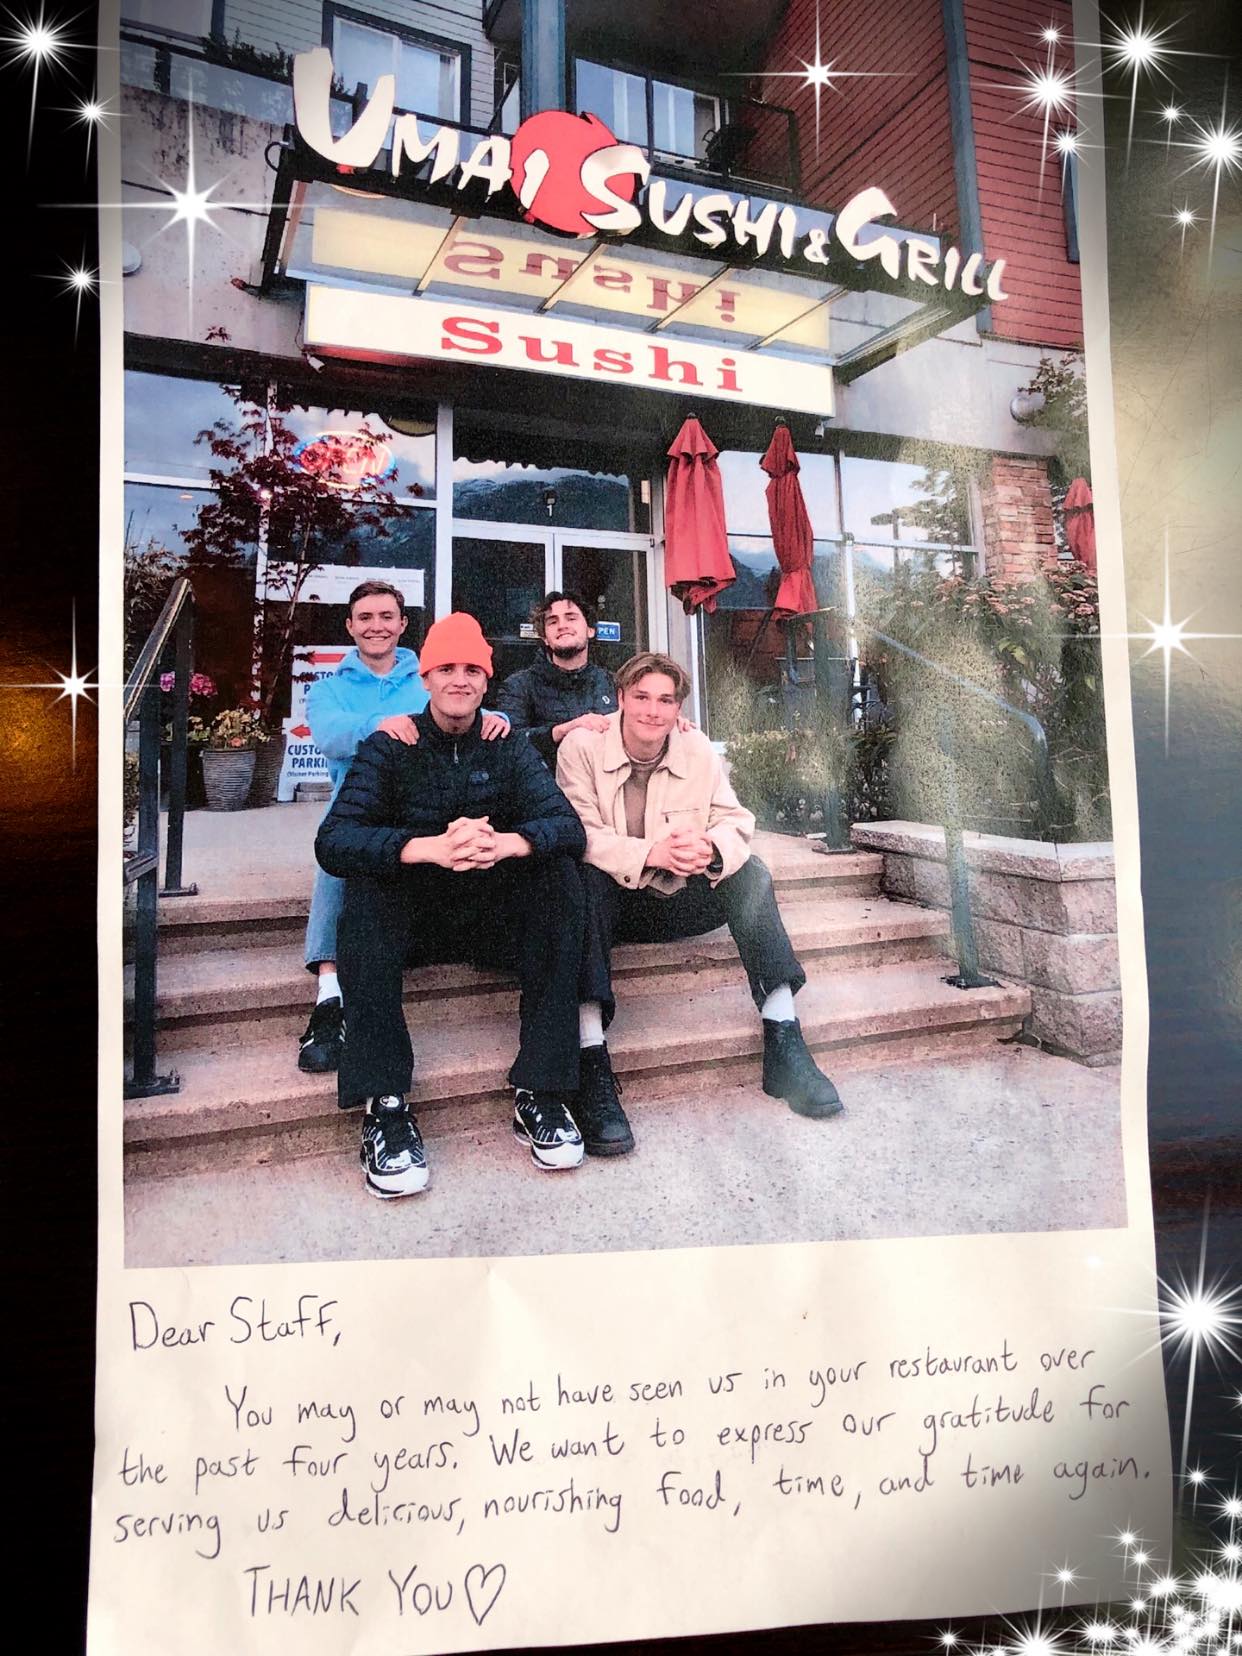 UMAI SUSHI & GRILL
Sushi
Sushi
OPEN
OPEN
CUSTO
P
CUSTO
PARKI
(Visitor Parking
Dear Staff,
You may or may not have seen us in your restaurant over
the past four years. We want to express our gratitude for
serving us delicious, nourishing food, time, and time again.
THANK YOU♡